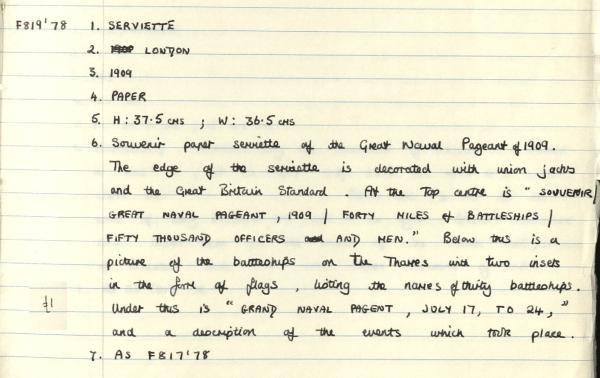 F819'78 1. SERVIETTE
2. LONDON
3. 1909
4. PAPER
5. H: 37.5 cms ; W: 36.5 cms
6. Souvenir paper serviette of the Great Naval Pageant of 1909.
The edge of the serviette is decorated with union jacks
and the Great Britain Standard. At the Top centre is "SOUVENIR/
GREAT NAVAL PAGEANT, 1909 / FORTY MILES of BATTLESHIPS /
FIFTY THOUSAND OFFICERS AND MEN." Below this is a
picture of the battleships on the Thames with two insets
in the form of flags, listing the names of thirty battleships.
£1 Under this is "GRAND NAVAL PAGENT, JULY 17, TO 24,"
and a description of the events which took place.
7. As F817'78